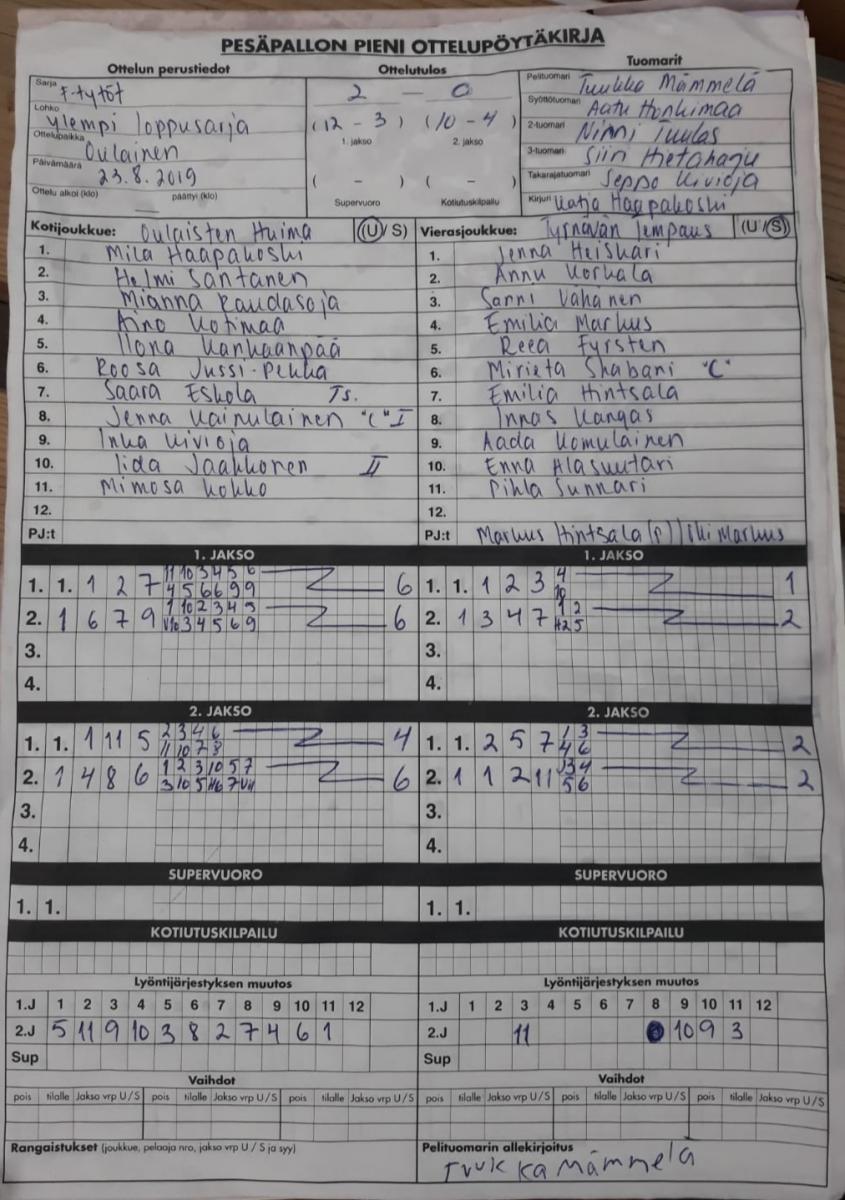 PESÄPALLON PIENI OTTELUPÖYTÄKIRJA
Ottelun perustiedot Ottelutulos Tuomarit
Sarja F-tytöt
Lohko ylempi loppusarja
Ottelupaikka Oulainen
Päivämäärä 23.8.2019
Ottelu alkoi (klo) päättyi (klo)
2 – 0
(12 – 3) (10 – 4)
1. jakso 2. jakso
( – ) ( – )
Supervuoro Kotiutuskilpailu
Pelituomari Tuukka Mämmelä
Syöttötuomari Aatu Honkimaa
2-tuomari Ninni Tuulas
3-tuomari Siiri Hietaharju
Takarajatuomari Seppo Kivioja
Kirjuri Katja Haapakoski
Kotijoukkue: Oulaisten Huima (U / S)
1. Mila Haapakoski
2. Helmi Santanen
3. Mianna Raudasoja
4. Aino Kotimaa
5. Ilona Kankaanpää
6. Roosa Jussi-Pekka
7. Saara Eskola Ts.
8. Jenna Kainulainen "C" I
9. Inka Kivioja
10. Iida Jaakkonen II
11. Mimosa Kokko
12.
PJ:t
Vierasjoukkue: Tyrnävän Tempaus (U / S)
1. Jenna Heiskari
2. Annu Korkala
3. Sanni Vähänen
4. Emilia Markus
5. Reea Fyrsten
6. Mirieta Shabani "C"
7. Emilia Hintsala
8. Innas Kangas
9. Aada Komulainen
10. Enna Alasuutari
11. Pihla Sunnari
12.
PJ:t Markus Hintsala (P)
1. JAKSO 1. JAKSO
1. 1. 1 2 7 6
2. 1 6 7 9 6
3.
4.
1. 1. 1 2 3 1
2. 1 3 4 7 2
3.
4.
2. JAKSO 2. JAKSO
1. 1. 1 11 5 4
2. 1 4 8 6 6
3.
4.
1. 1. 2 5 7 2
2. 1 1 2 11 2
3.
4.
SUPERVUORO SUPERVUORO
1. 1. 1. 1.
KOTIUTUSKILPAILU KOTIUTUSKILPAILU
Lyöntijärjestyksen muutos
1.J 1 2 3 4 5 6 7 8 9 10 11 12
2.J 5 11 9 10 3 8 2 7 4 6 1
Sup
Lyöntijärjestyksen muutos
1.J 1 2 3 4 5 6 7 8 9 10 11 12
2.J 11 10 9 3
Sup
Vaihdot Vaihdot
pois tilalle Jakso vrp U/S pois tilalle Jakso vrp U/S pois tilalle Jakso vrp U/S
pois tilalle Jakso vrp U/S pois tilalle Jakso vrp U/S pois tilalle Jakso vrp U/S
Rangaistukset (joukkue, pelaaja nro, jakso vrp U / S ja syy)
Pelituomarin allekirjoitus
Tuukka Mämmelä